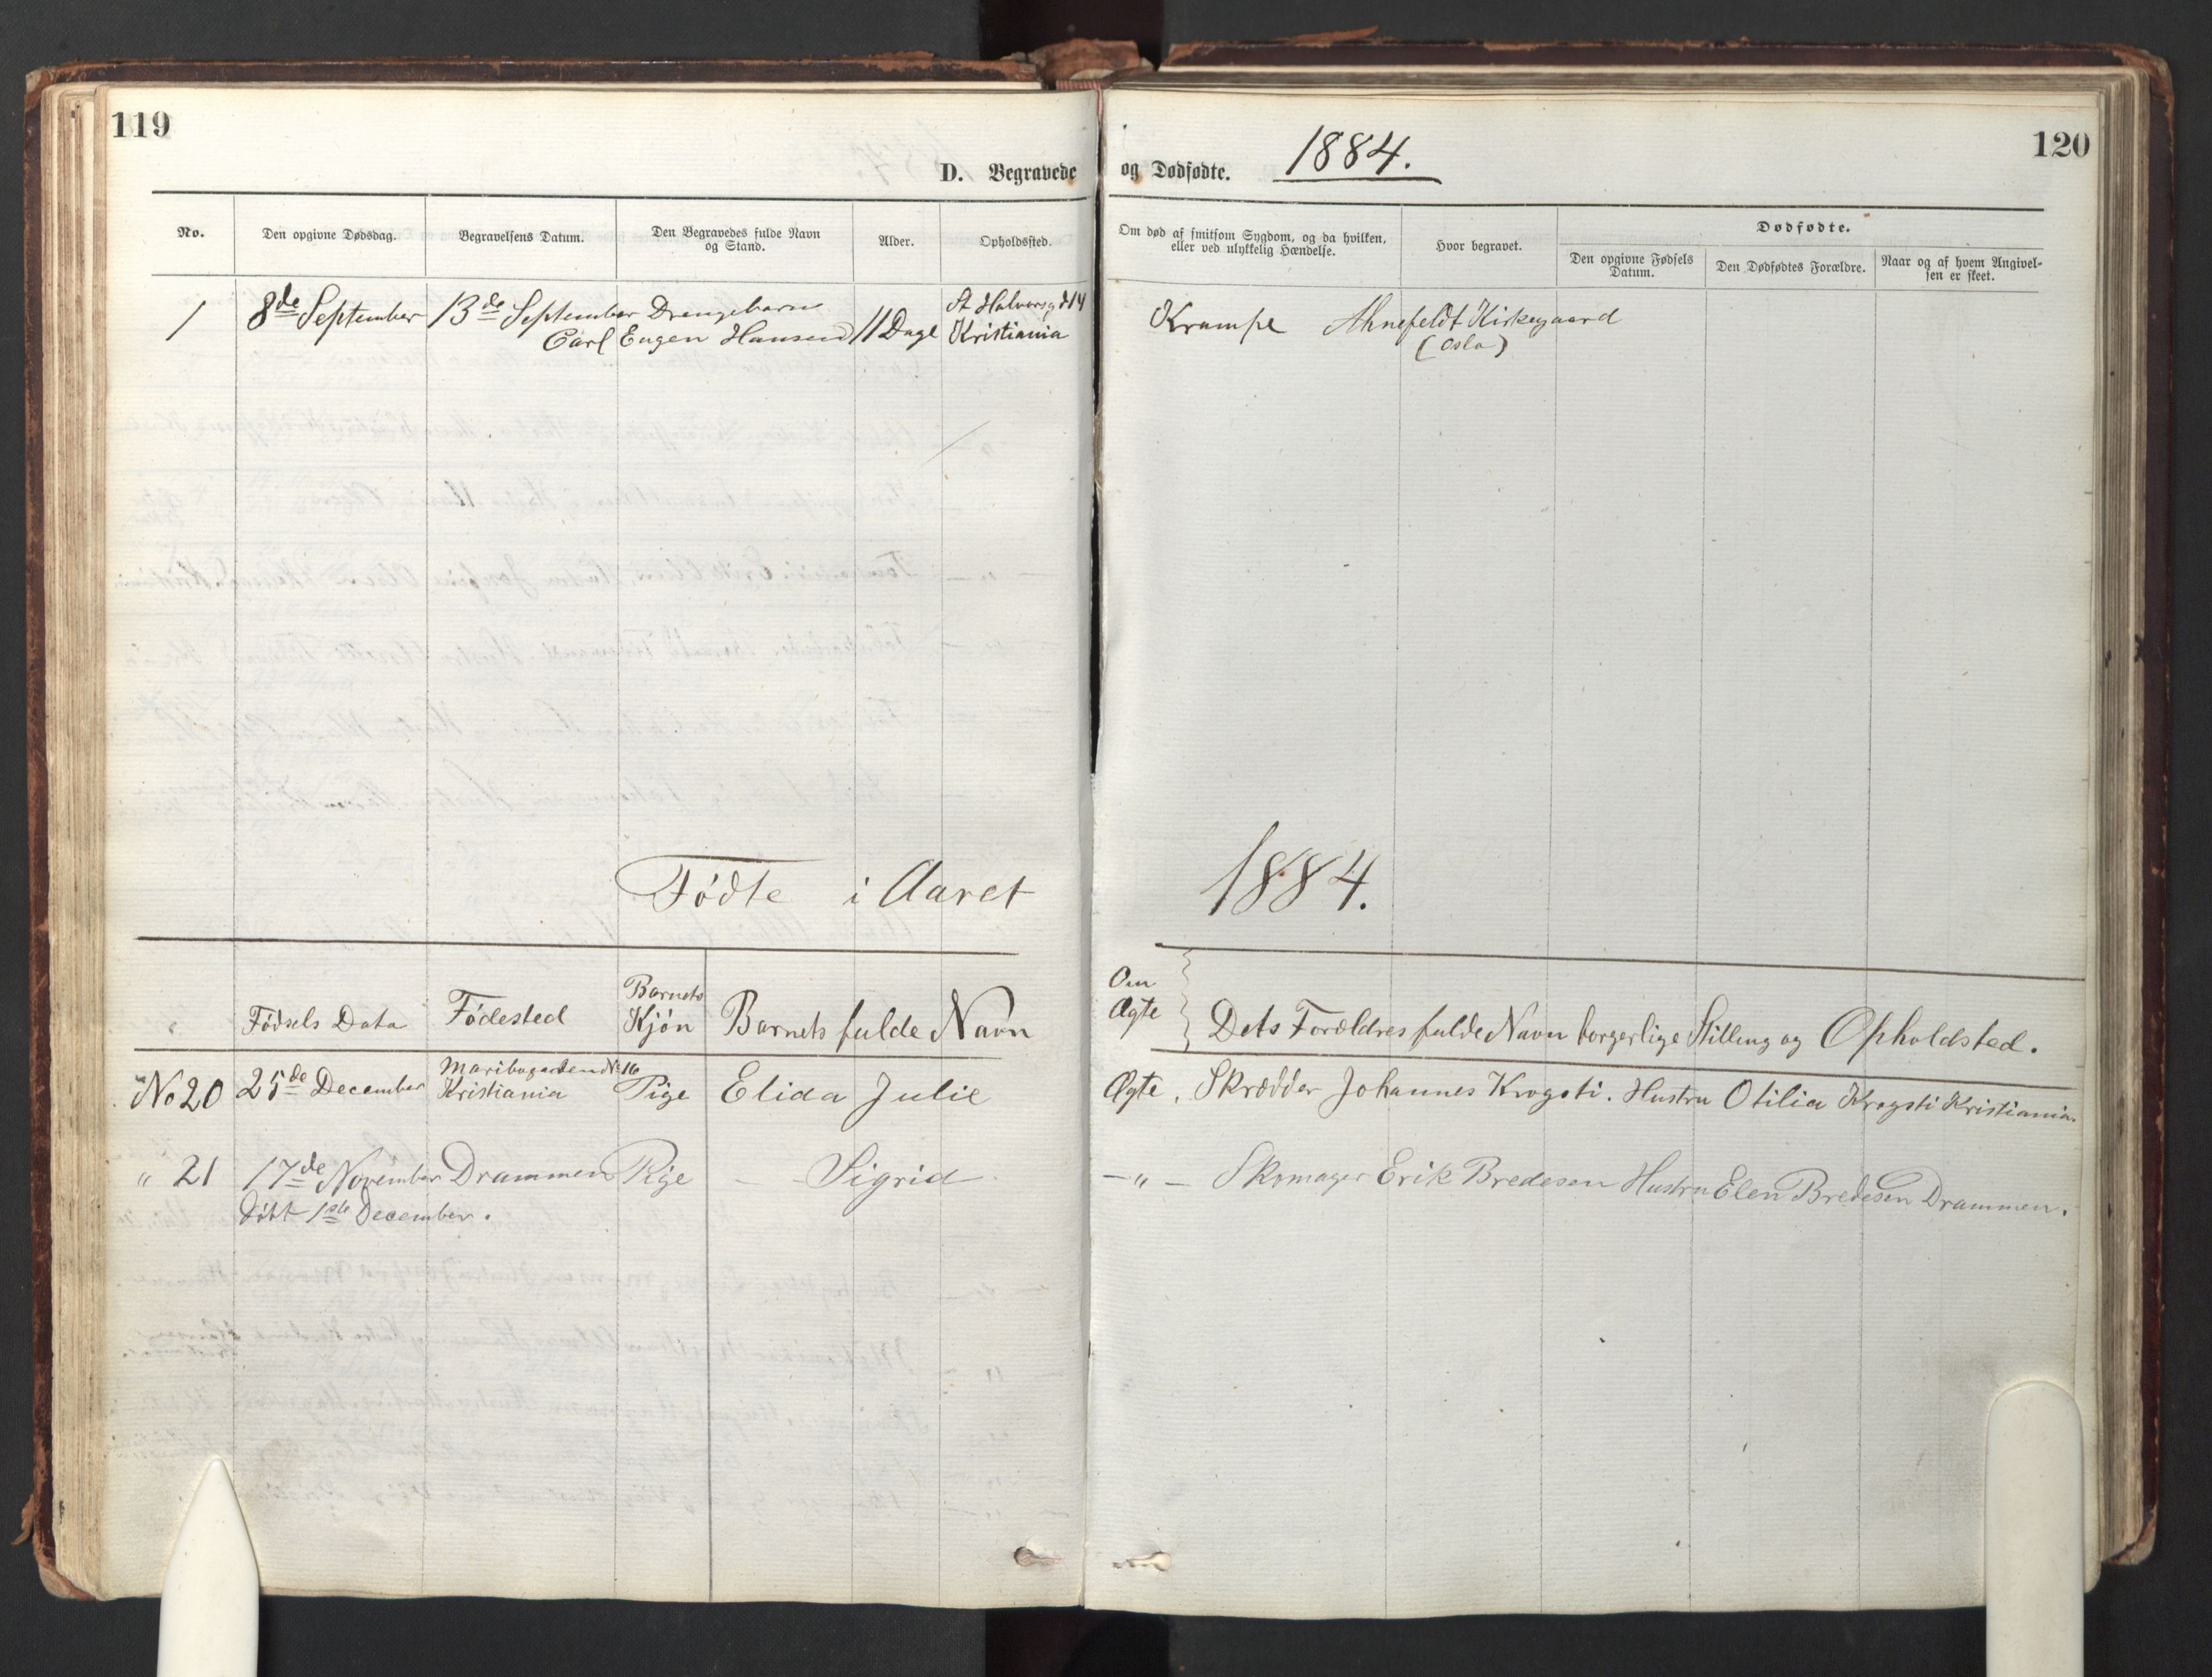 119
D. Begravede
No.
Den opgivne Dødsdag.
Begravelsens Datum.
Den Begravedes fulde Navn
og Stand.
Alder.
Opholdssted.
1
8de September
13de September
Drengebarn
Carl Eugen Hansen
11 Dage
St Halvorsgd 14
Kristiania
Fødte i Aaret
Fødsels Data
Fødested
Barnets
Kjön
Barnets fulde Navn
No 20
25de December
Maribogarden No 16
Kristiania
Pige
Elida Julie
" 21
17de November
Drammen
Pige
Sigrid
döbt 1ste December.
120
og Dødfødte.
1884.
Om død af smitsom Sygdom, og da hvilken,
eller ved ulykkelig Hændelse.
Hvor begravet.
Dødfødte.
Den opgivne Fødsels
Datum.
Den Dødfødtes Forældre.
Naar og af hvem Angivel-
sen er skeet.
Krampe
Ahnefeldt Kirkegaard
(Oslo)
1884.
Om
Ægte
Dets Forældres fulde Navn borgerlige Stilling og Opholdsted.
Ægte, Skrædder Johannes Krogsti. Hustru Otilia Krogsti Kristiania.
— " — Skomager Erik Bredesen Hustru Elen Bredesen Drammen.